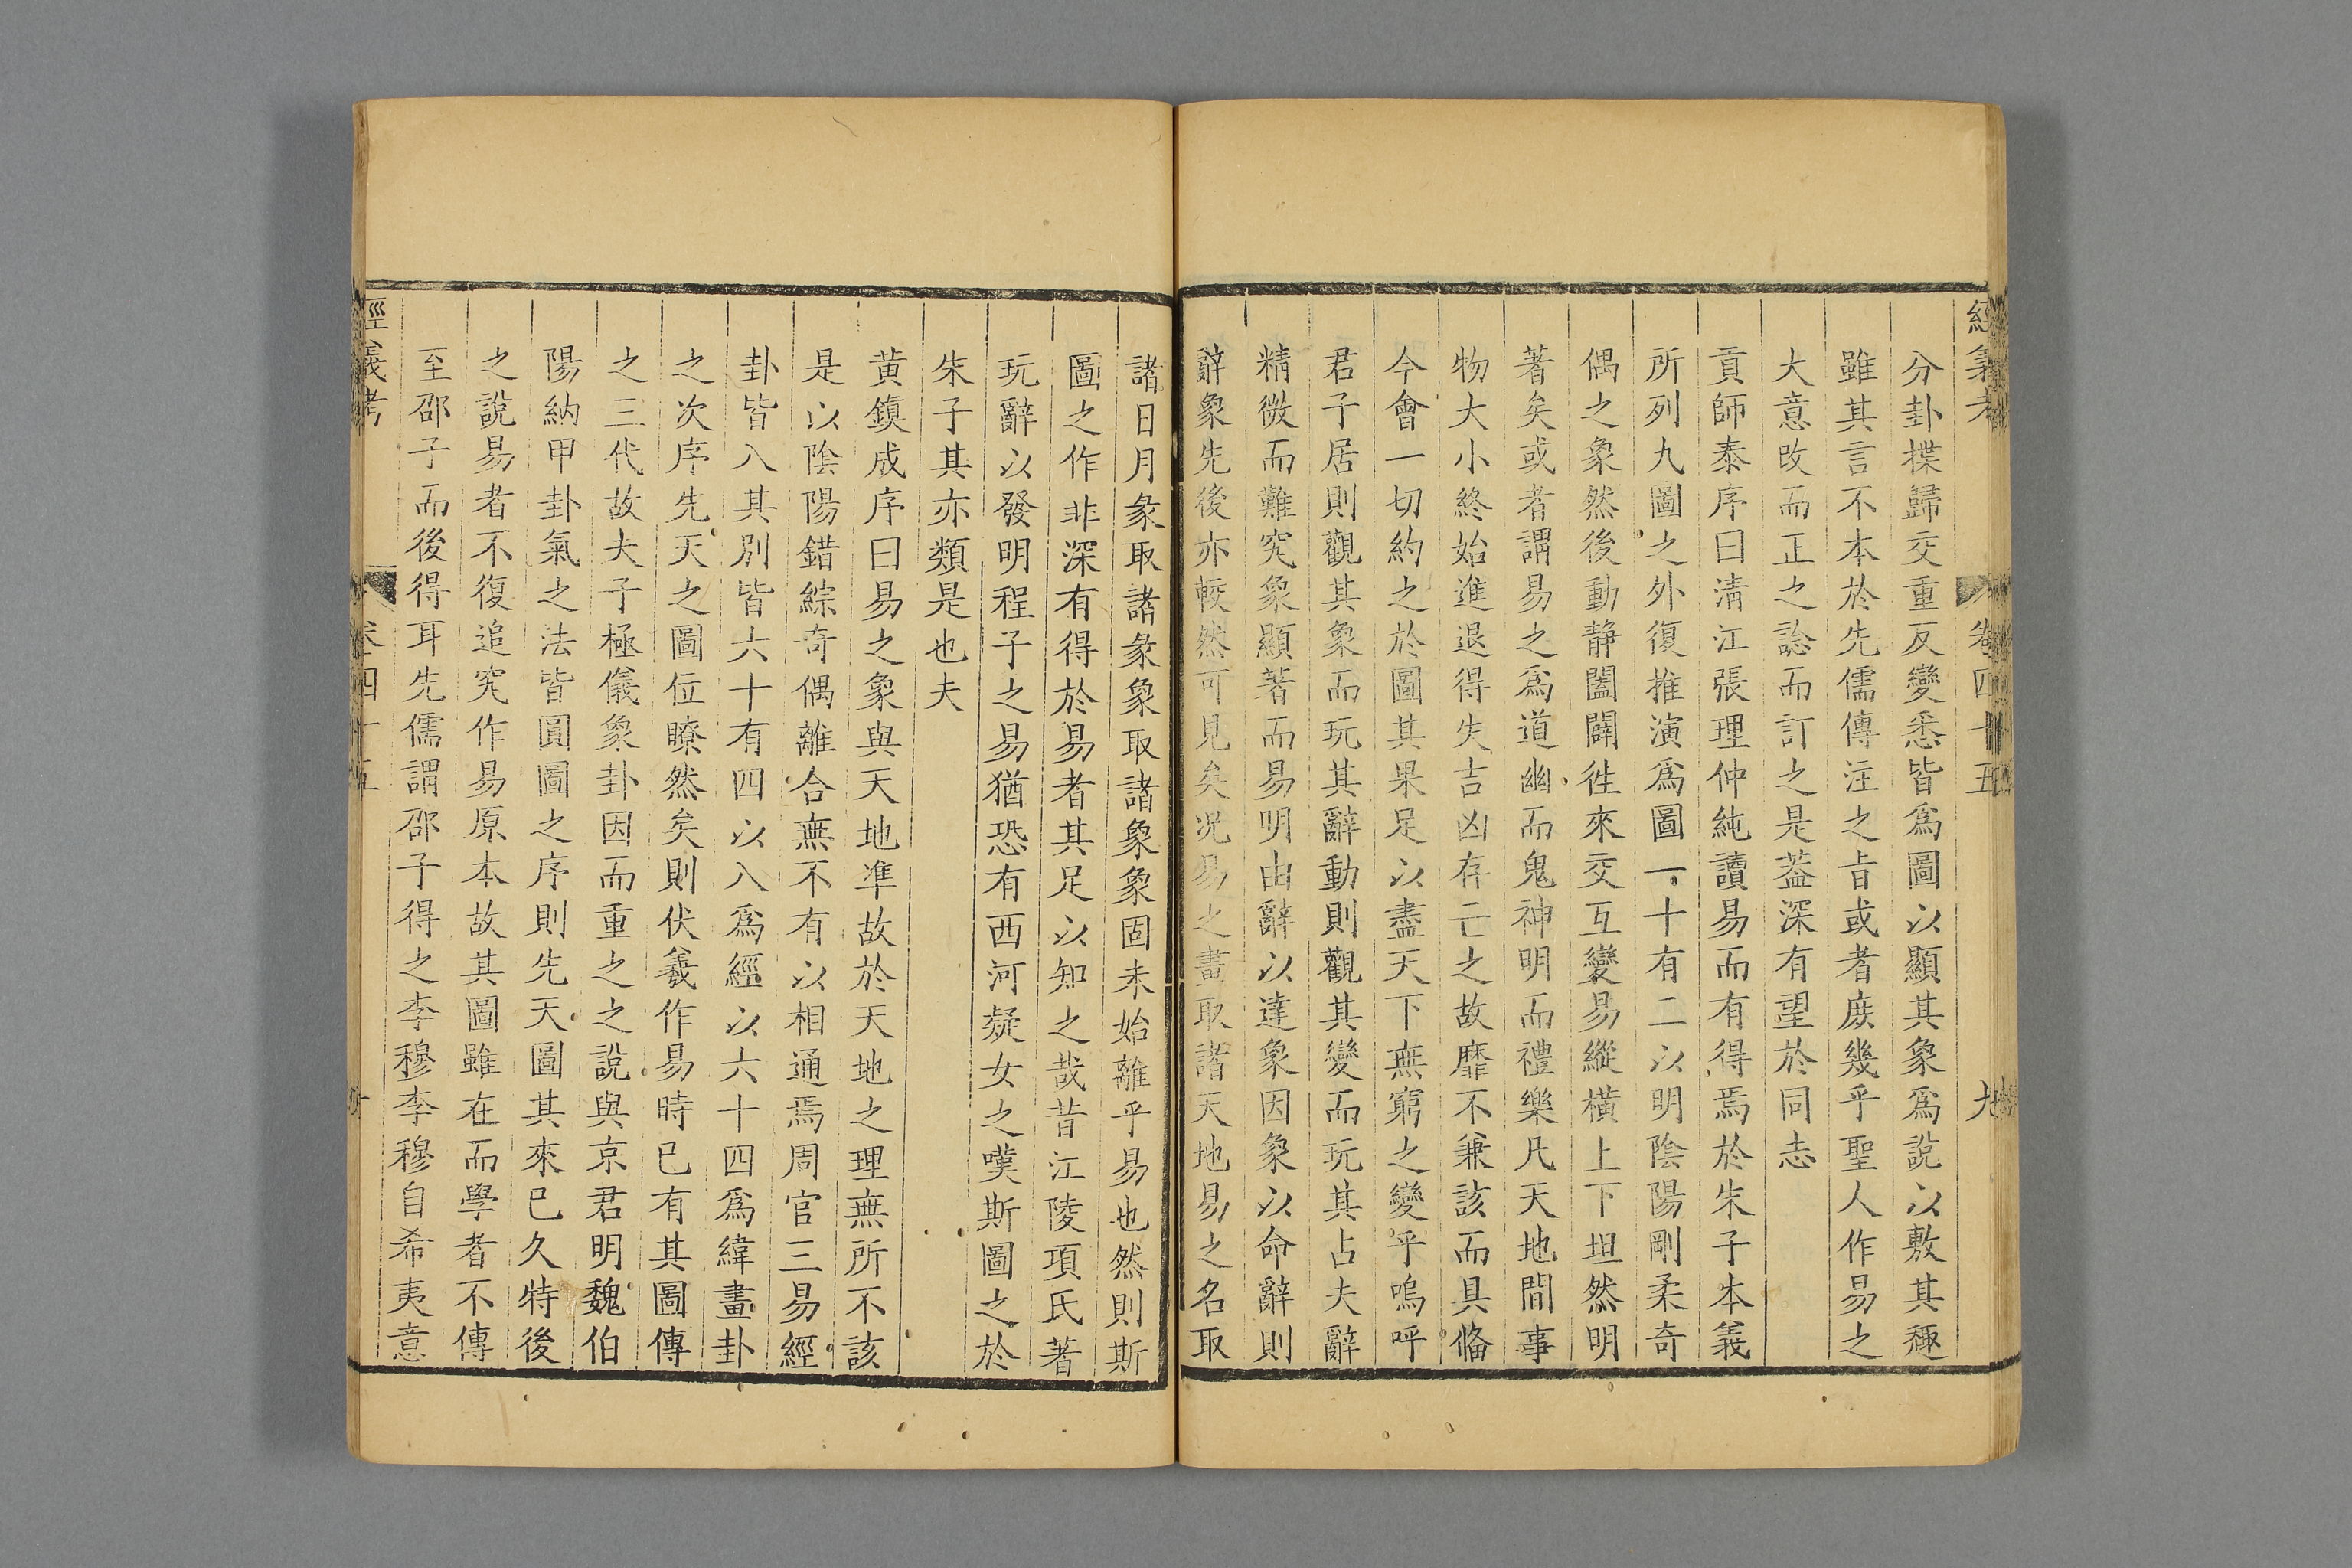 經義考
卷四十五
九
分卦揲歸交重反變悉皆爲圖以顯其象爲說以敷其𥡴
雖其言不本於先儒傳注之旨或者庻幾乎聖人作易之
大意改而正之諗而訂之是葢深有望於同志
貢師泰序曰淸江張理仲純讀易而有得焉於朱子本義
所列九圖之外復推演爲圖一十有二以明陰陽剛柔奇
偶之象然後動静闔闢徃來交互變易縱橫上下坦然明
著矣或者謂易之爲道幽而鬼神明而禮樂凡天地間事
物大小終始進退得失吉凶存亡之故靡不兼該而具偹
今會一切約之於圖其果足以盡天下無窮之變乎嗚呼
君子居則觀其象而玩其辭動則觀其變而玩其占夫辭
精微而難究象顯著而易明由辭以達象因象以命辭則
辭象先後亦較然可見矣况易之畫取諸天地易之名取
諸日月彖取諸彖象取諸象象固未始離乎易也然則斯
圖之作非深有得於易者其足以知之哉昔江陵項氏著
玩辭以發明程子之易猶恐有西河疑女之嘆斯圖之於
朱子其亦類是也夫
黄鎮成序曰易之象與天地準故於天地之理無所不該
是以陰陽錯綜奇偶離合無不有以相通焉周官三易經
卦皆八其別皆六十有四以八爲經以六十四爲緯畫卦
之次序先天之圖位瞭然矣則伏羲作易時已有其圖傳
之三代故夫子極儀象卦因而重之之說與京君明魏伯
陽納甲卦氣之法皆圓圖之序則先天圖其來已久特後
之說易者不復追究作易原本故其圖雖在而學者不傳
至邵子而後得耳先儒謂邵子得之李穆李穆自希夷意
經義考
卷四十五
十